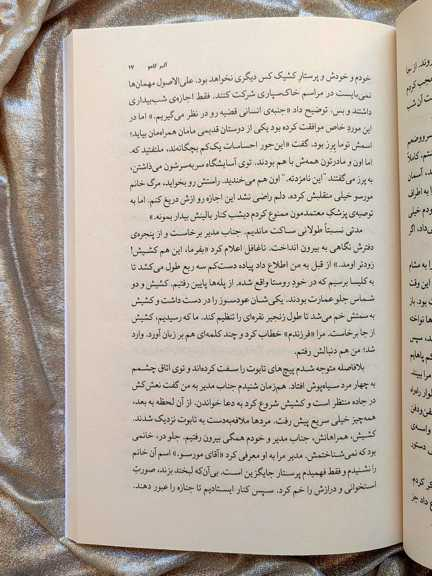 آلبر کامو ۱۷
خودم و خودش و پرستار کشیک کس دیگری نخواهد بود. علی‌الاصول مهمان‌ها
نمی‌بایست در مراسم خاک‌سپاری شرکت کنند. فقط اجازه‌ی شب‌بیداری
داشتند و بس. توضیح داد «جنبه‌ی انسانی قضیه رو در نظر می‌گیریم.» اما در
این مورد خاص موافقت کرده بود یکی از دوستان قدیمی مامان همراه‌مان بیاید؛
اسمش توما پرز بود. گفت «این‌جور احساسات یک‌کم بچگانه‌ند، ملتفتید که.
اما اون و مادرتون همه‌ش با هم بودند. توی آسایشگاه سربه‌سرشون می‌ذاشتن،
به پرز می‌گفتند "این نامزدته." اون هم می‌خندید. راستش رو بخواید، مرگ خانم
مورسو خیلی منقلبش کرده. دلم راضی نشد این اجازه رو ازش دریغ کنم. اما به
توصیه‌ی پزشکِ معتمدمون ممنوع کردم دیشب کنار بالینش بیدار بمونه.»
مدتی نسبتاً طولانی ساکت ماندیم. جناب مدیر برخاست و از پنجره‌ی
دفترش نگاهی به بیرون انداخت. ناغافل اعلام کرد «بفرما، این هم کشیش!
زودتر اومد.» از قبل به من اطلاع داد پیاده دست‌کم سه ربع طول می‌کشد تا
به کلیسا برسیم که در خودِ روستا واقع شده. از پله‌ها پایین رفتیم. کشیش و دو
شماس جلو عمارت بودند. یکی‌شان عودسوز را در دست داشت و کشیش
به سمتش خم می‌شد تا طول زنجیر نقره‌ای را تنظیم کند. ما که رسیدیم، کشیش
از جا برخاست. مرا «فرزندم» خطاب کرد و چند کلمه‌ای هم بر زبان آورد. وارد
شد؛ من هم دنبالش رفتم.
بلافاصله متوجه شدم پیچ‌های تابوت را سفت کرده‌اند و توی اتاق چشمم
به چهار مرد سیاه‌پوش افتاد. هم‌زمان شنیدم جناب مدیر به من گفت نعش‌کش
در جاده منتظر است و کشیش شروع کرد به دعا خواندن. از آن لحظه به بعد،
همه‌چیز خیلی سریع پیش رفت. مردها ملافه‌به‌دست به تابوت نزدیک شدند.
کشیش، همراهانش، جناب مدیر و خودم همگی بیرون رفتیم. جلو در، خانمی
بود که نمی‌شناختمش. مدیر مرا به او معرفی کرد «آقای مورسو.» اسم آن خانم
را نشنیدم و فقط فهمیدم پرستار جایگزین است. بی‌آن‌که لبخند بزند، صورتِ
استخوانی و درازش را خم کرد. سپس کنار ایستادیم تا جنازه را عبور دهند.